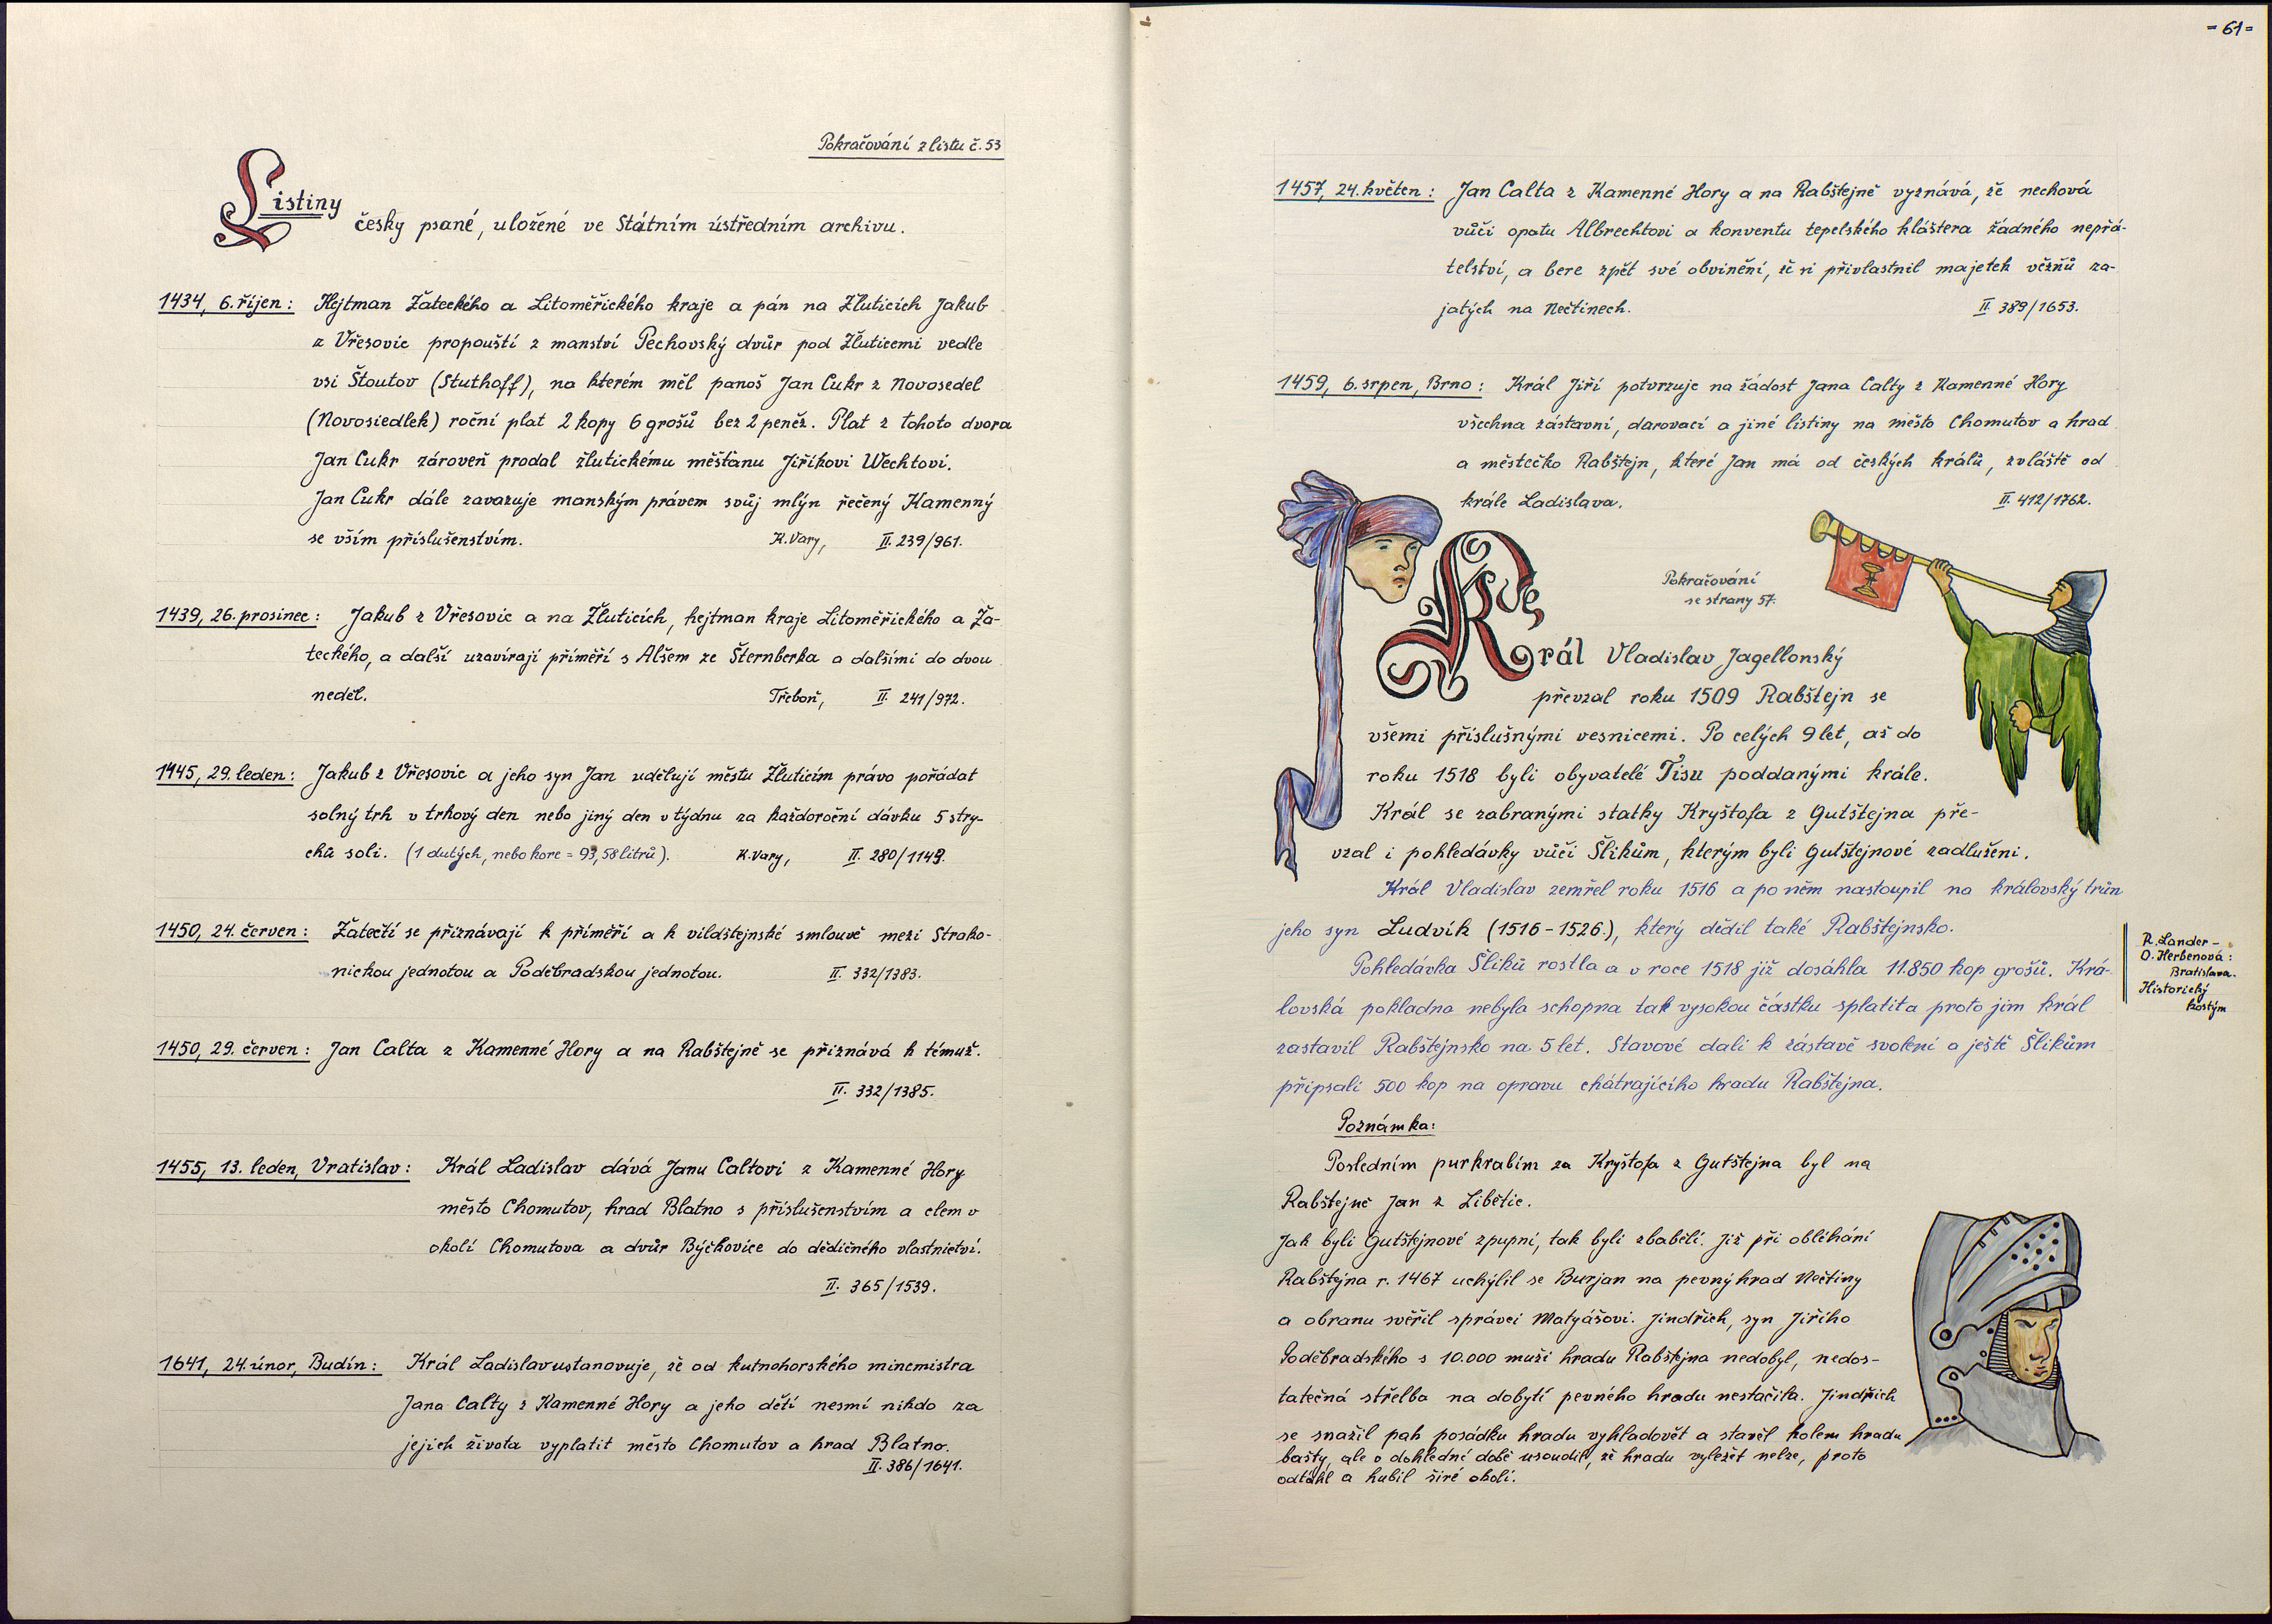 Pokračování z listu č. 53
Listiny
česky psané, uložené ve Státním ústředním archivu.
1434, 6. říjen: Hejtman Žateckého a Litoměřického kraje a pán na Žluticích Jakub
z Vřesovic propouští z manství Pechovský dvůr pod Žluticemi vedle
vsi Štoutov (Stuthoff), na kterém měl panoš Jan Cukr z Novosedel
(Novosiedlek) roční plat 2 kopy 6 grošů bez 2 peněz. Plat z tohoto dvora
Jan Cukr zároveň prodal žlutickému měšťanu Jiříkovi Wechtovi.
Jan Cukr dále zavazuje manským právem svůj mlýn řečený Kamenný
se vším příslušenstvím. K. Vary, II. 239/961.
1439, 26. prosinec: Jakub z Vřesovic a na Žluticích, hejtman kraje Litoměřického a Ža-
teckého, a další uzavírají příměří s Alšem ze Šternberka a dalšími do dvou
neděl. Třeboň, II. 241/972.
1445, 29. leden: Jakub z Vřesovic a jeho syn Jan udělují městu Žluticím právo pořádat
solný trh v trhový den nebo jiný den v týdnu za každoroční dávku 5 stry-
chů soli. (1 dutých, nebo korc = 93,58 litrů). K. Vary, II. 280/1149.
1450, 24. červen: Žatečtí se přiznávají k příměří a k vildštejnské smlouvě mezi Strako-
nickou jednotou a Poděbradskou jednotou. II. 332/1383.
1450, 29. červen: Jan Calta z Kamenné Hory a na Rabštejně se přiznává k témuž.
II. 332/1385.
1455, 13. leden, Vratislav: Král Ladislav dává Janu Caltovi z Kamenné Hory
město Chomutov, hrad Blatno s příslušenstvím a clem v
okolí Chomutova a dvůr Býčkovice do dědičného vlastnictví.
II. 365/1539.
1641, 24. únor, Budín: Král Ladislav ustanovuje, že od kutnohorského mincmistra
Jana Calty z Kamenné Hory a jeho dětí nesmí nikdo za
jejich života vyplatit město Chomutov a hrad Blatno.
II. 386/1641.
- 61 =
1457, 24. květen: Jan Calta z Kamenné Hory a na Rabštejně vyznává, že nechová
vůči opatu Albrechtovi a konventu tepelského kláštera žádného nepřá-
telství, a bere zpět své obvinění, že si přivlastnil majetek vězňů za-
jatých na Nečtinech. II. 389/1653.
1459, 6. srpen, Brno: Král Jiří potvrzuje na žádost Jana Calty z Kamenné Hory
všechna zástavní, darovací a jiné listiny na město Chomutov a hrad
a městečko Rabštejn, které Jan má od českých králů, zvláště od
krále Ladislava. II. 412/1762.
Pokračování
se strany 57.
Král Vladislav Jagellonský
převzal roku 1509 Rabštejn se
všemi příslušnými vesnicemi. Po celých 9 let, až do
roku 1518 byli obyvatelé Tisu poddanými krále.
Král se zabranými statky Kryštofa z Gutštejna pře-
vzal i pohledávky vůči Šlikům, kterým byli Gutštejnové zadluženi.
Král Vladislav zemřel roku 1516 a po něm nastoupil na královský trůn
jeho syn Ludvík (1516-1526.), který dědil také Rabštejnsko.
Pohledávka Šliků rostla a v roce 1518 již dosáhla 11.850 kop grošů. Krá-
lovská pokladna nebyla schopna tak vysokou částku splatita proto jim král
zastavil Rabštejnsko na 5 let. Stavové dali k zástavě svolení a ještě Šlikům
připsali 500 kop na opravu chátrajícího hradu Rabštejna.
R. Lander -
O. Herbenová:
Bratislava.
Historický
kostým
Poznámka:
Posledním purkrabím za Kryštofa z Gutštejna byl na
Rabštejně Jan z Libětic.
Jak byli Gutštejnové zpupní, tak byli zbabělí. Již při obléhání
Rabštejna r. 1467 uchýlil se Burjan na pevný hrad Nečtiny
a obranu svěřil správci Matyášovi. Jindřich, syn Jiřího
Poděbradského s 10.000 muži hradu Rabštejna nedobyl, nedos-
tatečná střelba na dobytí pevného hradu nestačila. Jindřich
se snažil pak posádku hradu vyhladovět a stavěl kolem hradu
bašty, ale v dohledné době usoudil, že hradu vyležet nelze, proto
odtáhl a hubil širé okolí.